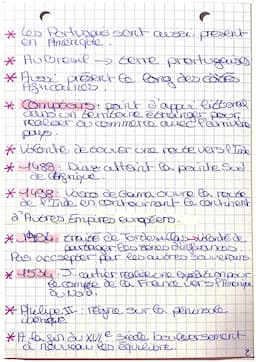 * Les Portugais sont aussi présent
en Amérique.
* Au Brésil → terre portugaise
* Aussi présent le long des côtes
Africaines.
* Comptoirs : point d'appui littoral
dans un territoire étranger pour
réaliser du commerce avec l'arrière
pays.
* Volonté de trouver une route vers l'Inde
* 1488 : Diaz atteint la pointe Sud
de l'Afrique.
* 1498 : Vasco de Gama ouvre la route
de l'Inde en contournant le continent
d'Autres Empires européens.
* 1494 : traité de Tordesillas → volonté de
partager les terres
Pas accepter par les autres souverains
* 1534 : J. cartier réalise une expédition pour
le compte de la France vers l'Amérique
du Nord.
* Philippe II : règne sur la péninsule
ibérique
* A la fin du XVIe siècle bouleversement
à nouveau les équilibre
2